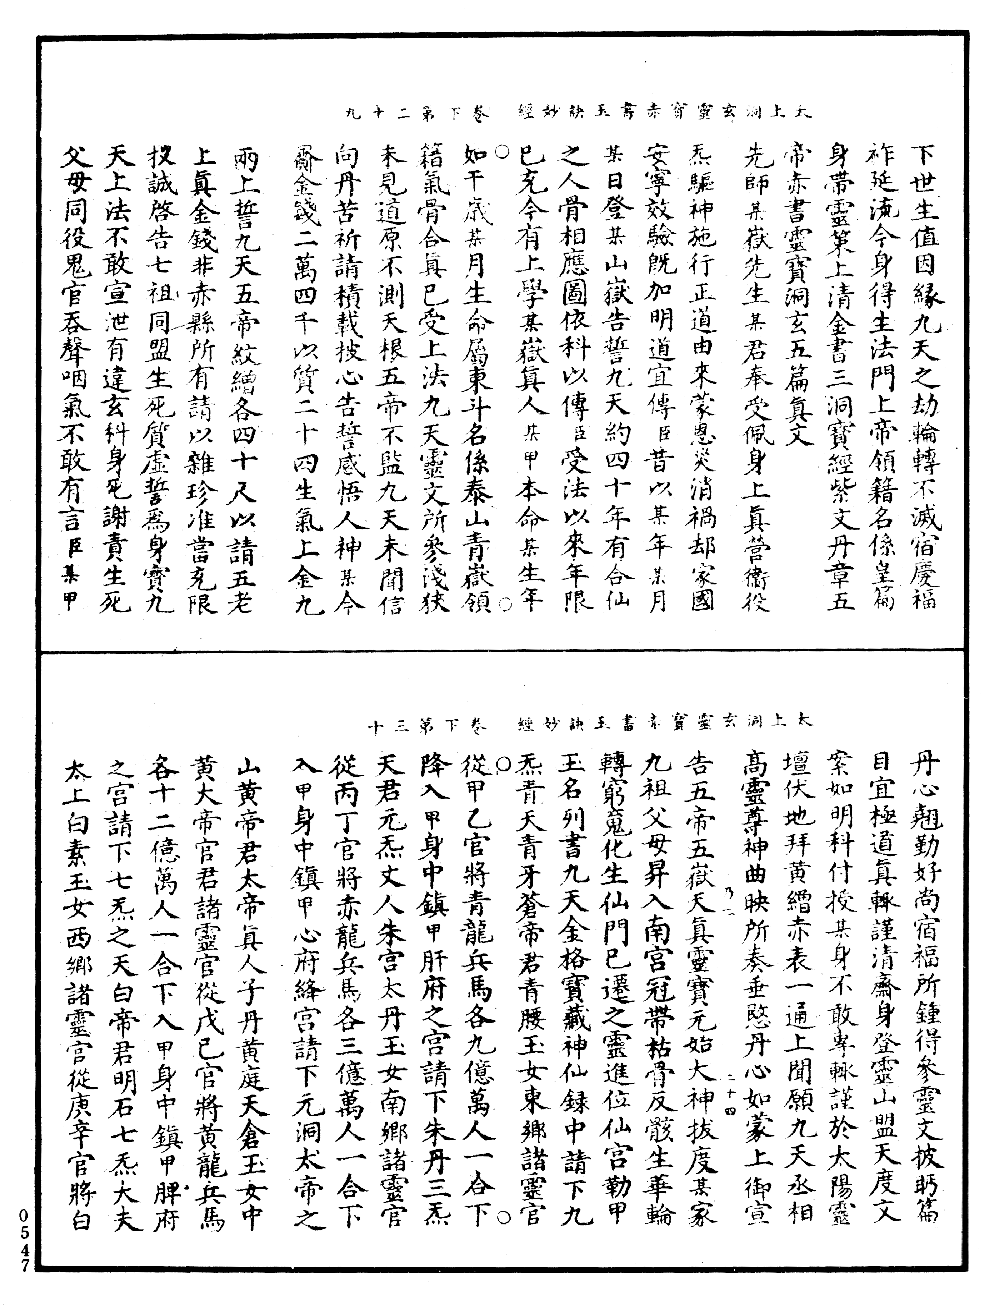 太上洞玄靈寶赤書玉訣妙經　卷下第二十九
下世生值因緣九天之劫輪轉不滅宿慶福
祚延流今身得生法門上帝領籍名係皇篇
身帶靈第上清金書三洞寶經紫文丹章五
帝赤書靈寶洞玄五篇真文
先師某嶽先生某君奉受佩身上真營衛役
炁驅神施行正道由來蒙恩災消禍却家國
安寧效驗既加明道宜傳臣昔以某年某月
某日登某山嶽告誓九天約四十年有合仙
之人骨相應圖依科以傳臣受法以來年限
已充今有上學某嶽真人某甲本命某生年
如干歲某月生命屬東斗名係泰山青嶽領
籍氣骨合真已受上法九天靈文所參淺狹
未見道原不測天根五帝不監九天未聞信
向丹苦祈請積載披心告誓感悟人神某今
齎金錢二萬四千以質二十四生氣上金九
兩上誓九天五帝紋繒各四十尺以請五老
上真金錢非赤縣所有請以雜珍准當充限
投誠啓告七祖同盟生死質虛誓爲身寶九
天上法不敢宣泄有違玄科身死謝責生死
父母同役鬼官吞聲咽氣不敢有言臣某甲
太上洞玄靈寶赤書玉訣妙經　卷下第三十
丹心翹勤好尚宿福所鍾得參靈文披眄篇
目宜極道真輙謹清齋身登靈山盟天度文
案如明科付授某身不敢專輙謹於太陽靈
壇伏地拜黃繒赤表一通上聞願九天丞相
高靈尊神曲映所奏垂愍丹心如蒙上御宣
告五帝五嶽天真靈寶元始大神拔度某家
九祖父母昇入南宮冠帶枯骨反骸生華輪
轉窮魂化生仙門已遷之靈進位仙宮勒甲
玉名列書九天金格寶藏神仙錄中請下九
炁青天青牙蒼帝君青腰玉女東鄉諸靈官
從甲乙官將青龍兵馬各九億萬人一合下
降入甲身中鎮甲肝府之宮請下朱丹三炁
天君元炁丈人朱宮太丹玉女南鄉諸靈官
從丙丁官將赤龍兵馬各三億萬人一合下
入甲身中鎮甲心府絳宮請下元洞太帝之
山黃帝君太帝真人子丹黃庭天倉玉女中
黃大帝官君諸靈官從戊己官將黃龍兵馬
各十二億萬人一合下入甲身中鎮甲脾府
之宮請下七炁之天白帝君明石七炁大夫
太上白素玉女西鄉諸靈官從庚辛官將白
乃二
二十四
0547